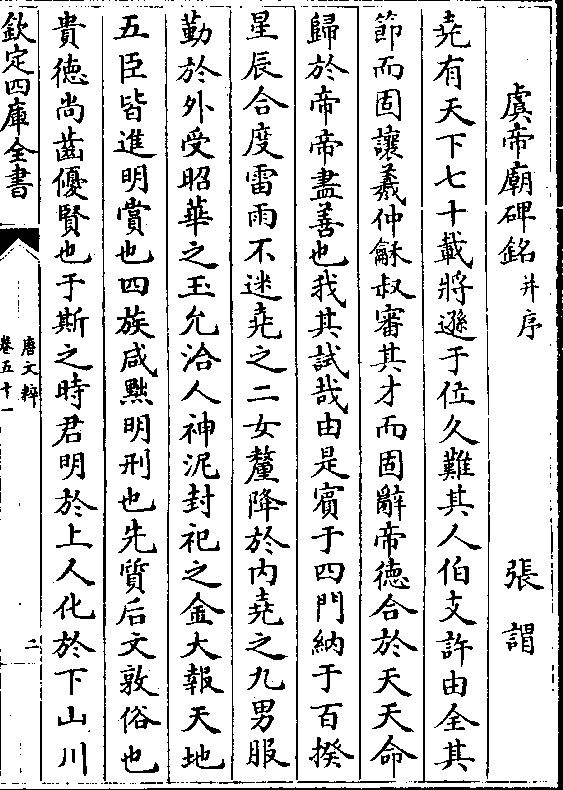 虞帝廟碑銘并序 張謂
堯有天下七十載將遜于位久難其人伯支許由全其
節而固讓羲仲龢叔審其才而固辭帝德合於天天命
歸於帝帝盡善也我其試哉由是賓于四門納于百揆
星辰合度雷雨不迷堯之二女釐降於内堯之九男服
勤於外受昭華之玉允洽人神泥封祀之金大報天地
五臣皆進明賞也四族咸黜明刑也先質后文敦俗也
貴德尚齒優賢也于斯之時君明於上人化於下山川
欽定四庫全書
唐文粹
卷五十一
二